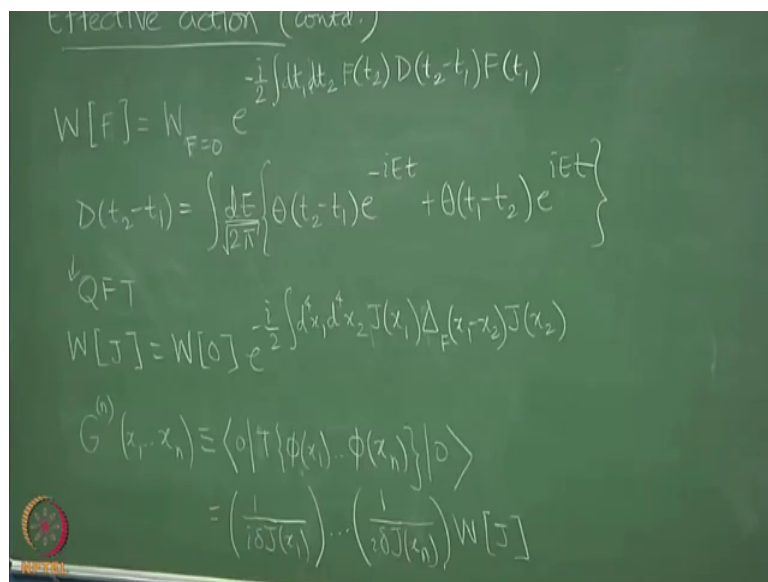 Effective action (contd.)
W[F] = W_{F=0} e^{-\frac{i}{2}\int dt_1 dt_2 F(t_2) D(t_2-t_1) F(t_1)}
D(t_2-t_1) = \int \frac{dE}{\sqrt{2\pi}} \{ θ(t_2-t_1) e^{-iEt} + θ(t_1-t_2) e^{iEt} \}
↓QFT
W[J] = W[0] e^{-\frac{i}{2}\int d^4x_1 d^4x_2 J(x_1) Δ_F(x_1-x_2) J(x_2)}
G^{(n)}(x_1..x_n) ≡ ⟨0|T{φ(x_1)..φ(x_n)}|0⟩
= (\frac{1}{iδJ(x_1)}) ... (\frac{1}{iδJ(x_n)}) W[J]
NPTEL